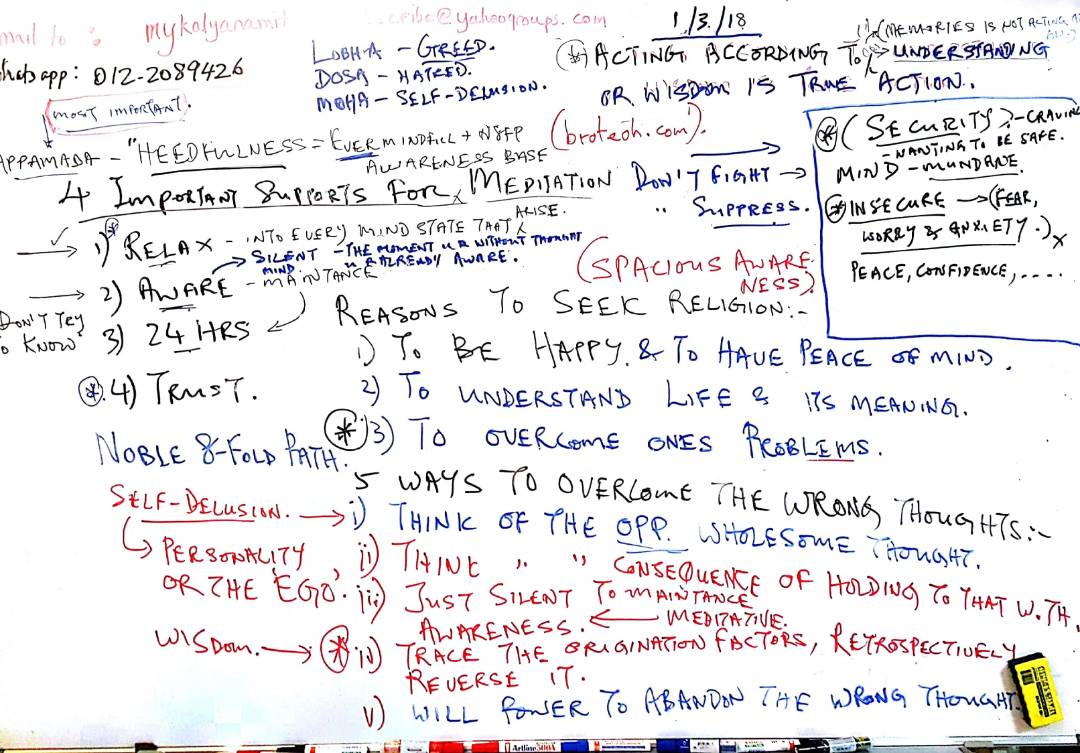 mail to : mykalyanamit cribe@yahoogroups.com
hatsapp: 012-2089426
1/3/18
LOBHA - GREED.
DOSA - HATRED.
MOHA - SELF-DELUSION.
(MEMORIES IS NOT ACTING
* ACTING ACCORDING TO UNDERSTANDING
OR WISDOM IS TRUE ACTION.
MOST IMPORTANT.
APPAMADA - "HEEDFULNESS = EVER MINDFUL +
AWARENESS BASE
(brotech.com).
4 IMPORTANT SUPPORTS FOR MEDITATION
DON'T FIGHT →
" SUPPRESS.
* (SECURITY) - CRAVING
- WANTING TO BE SAFE.
MIND - MUNDANE.
* INSECURE → (FEAR,
WORRY & ANXIETY.) x
PEACE, CONFIDENCE, .....
→ 1) RELAX - INTO EVERY MIND STATE THAT ARISE.
→ SILENT MIND - THE MOMENT U R WITHOUT THOUGHT
U R ALREADY AWARE.
→ 2) AWARE - MAINTANCE
(SPACIOUS AWARE
NESS)
DON'T TRY
TO KNOW
3) 24 HRS
* 4) TRUST.
REASONS TO SEEK RELIGION:-
1) TO BE HAPPY & TO HAVE PEACE OF MIND.
2) TO UNDERSTAND LIFE & ITS MEANING.
* 3) TO OVERCOME ONES PROBLEMS.
NOBLE 8-FOLD PATH.
5 WAYS TO OVERCOME THE WRONG THOUGHTS:-
SELF-DELUSION. → i) THINK OF THE OPP. WHOLESOME THOUGHT.
↳ PERSONALITY
OR THE 'EGO'.
ii) THINK " " CONSEQUENCE OF HOLDING TO THAT W.TH.
iii) JUST SILENT TO MAINTANCE
AWARENESS. ← MEDITATIVE.
WISDOM. → * iv) TRACE THE ORIGINATION FACTORS, RETROSPECTIVELY
REVERSE IT.
v) WILL POWER TO ABANDON THE WRONG THOUGHT.
Artline 500A